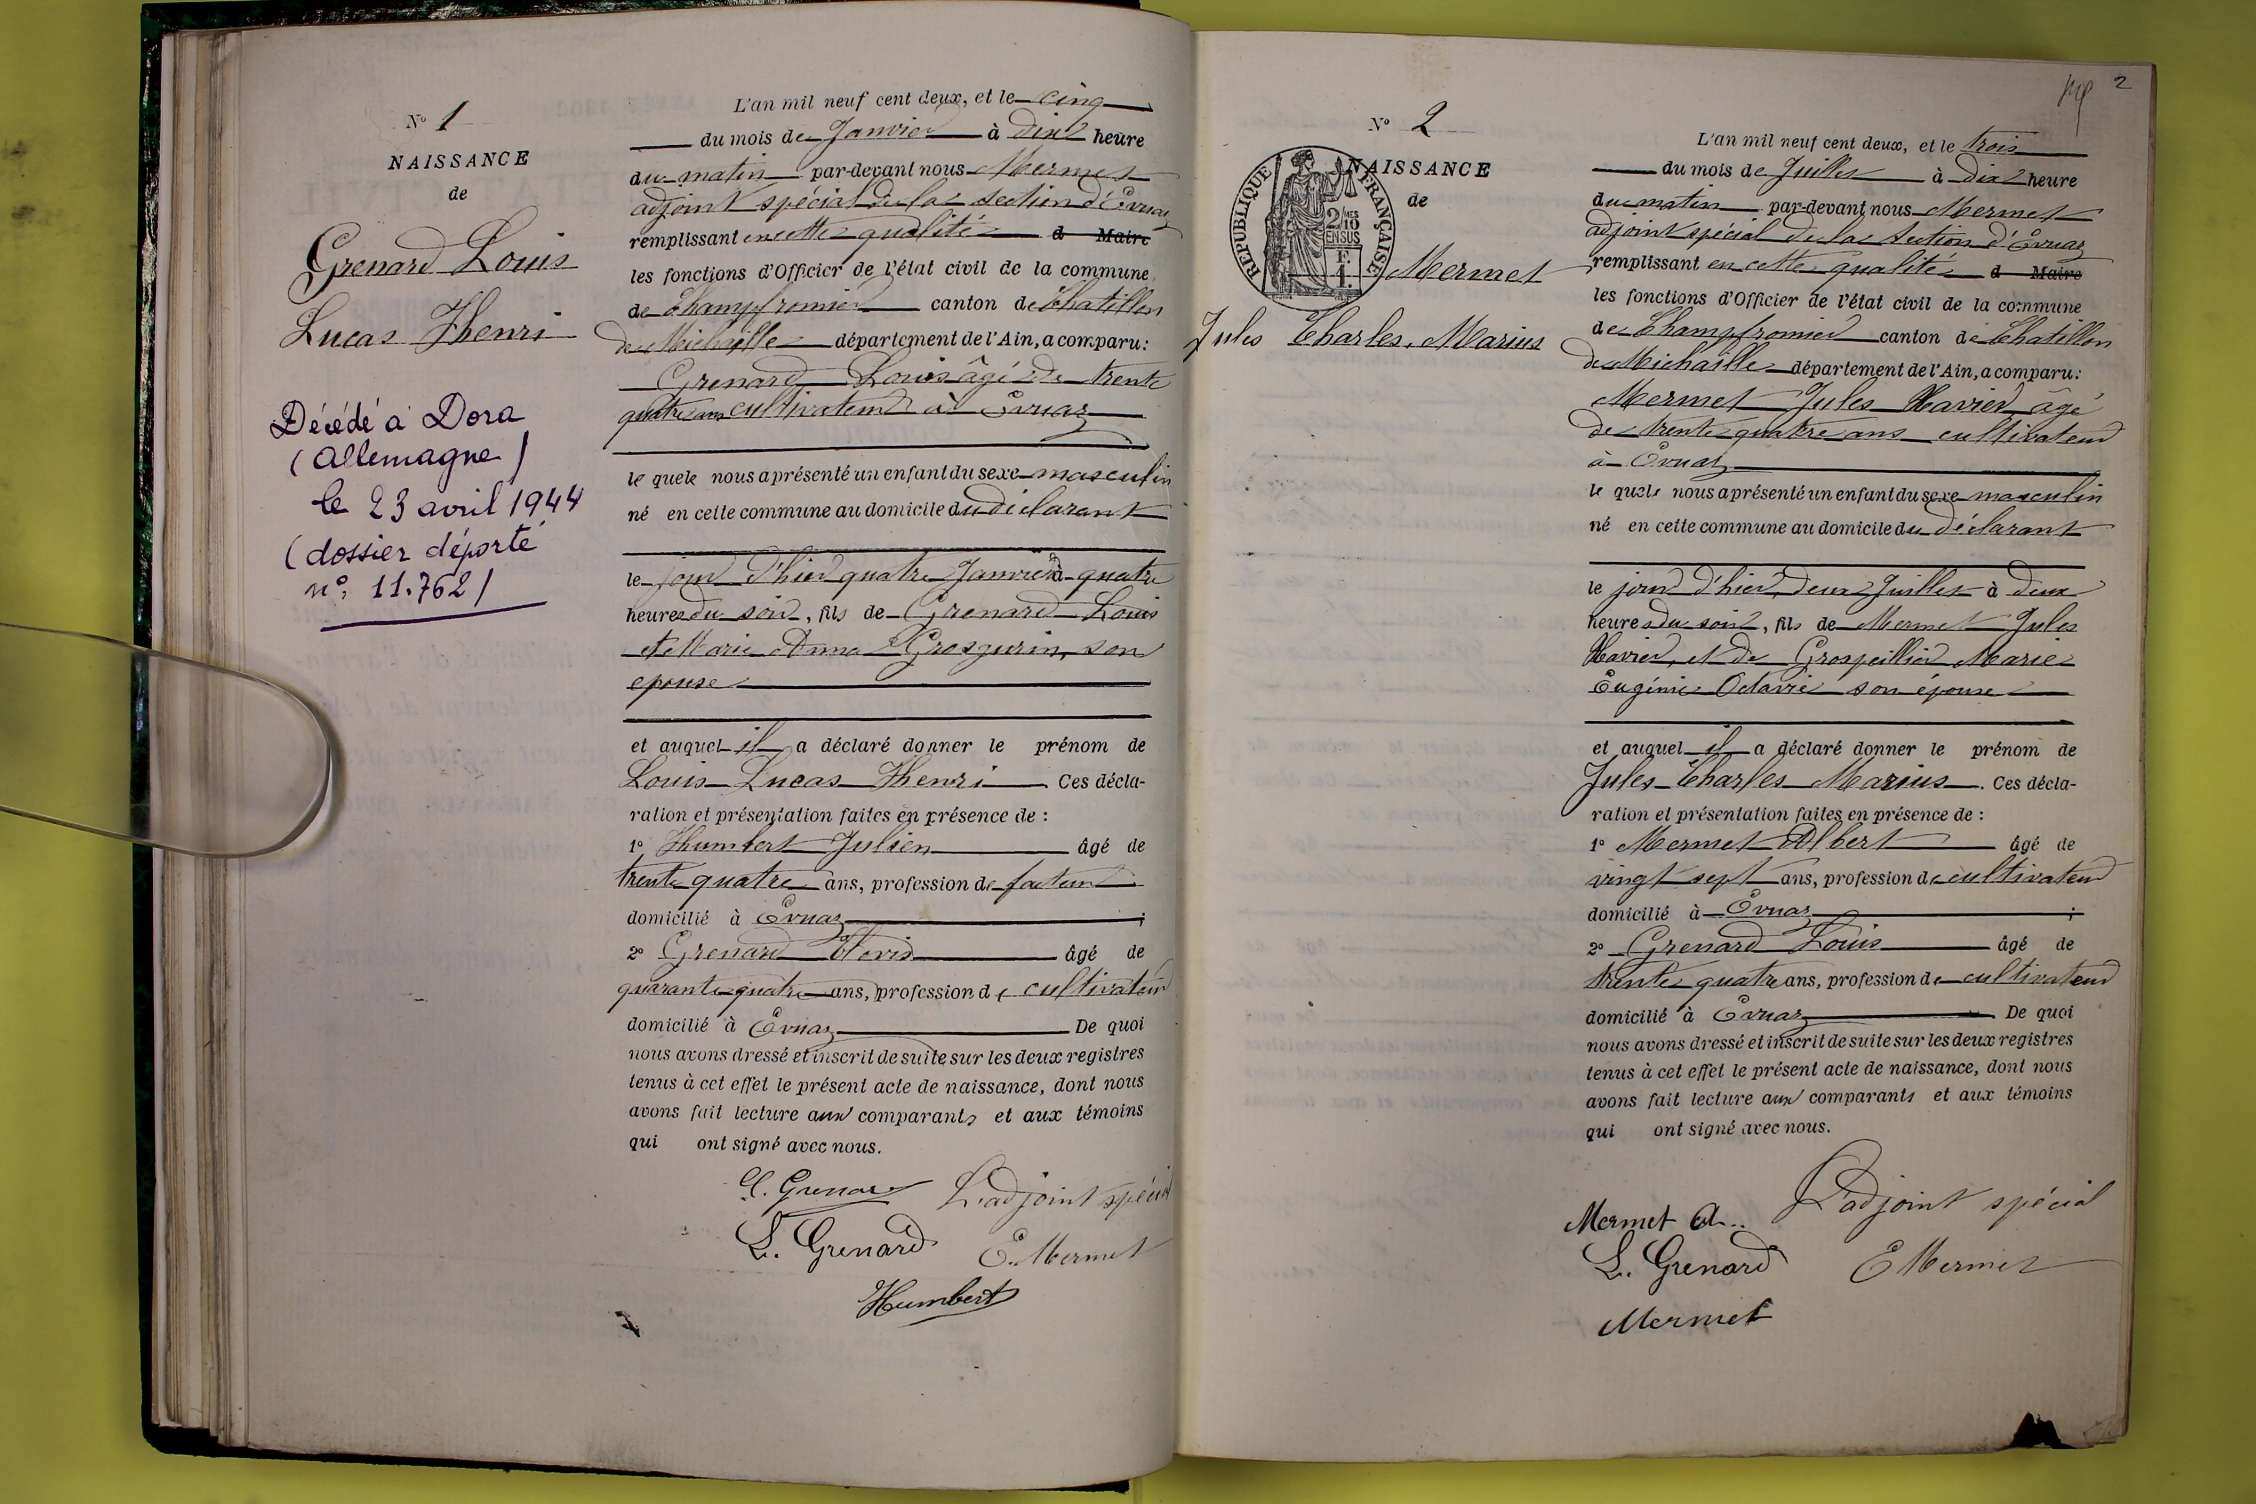 N° 1
NAISSANCE
de
Grenard Louis
Lucas Henri
Décédé à Dora
(Allemagne)
le 23 avril 1944
(dossier déporté
n°: 11.762)
L'an mil neuf cent deux, et le cinq
du mois de Janvier à dix heure
du matin par-devant nous Mermet
adjoint spécial de la section d'Evuaz
remplissant en cette qualité d Maire
les fonctions d'Officier de l'état civil de la commune
de Champfromier canton de Chatillon
de Michaille département de l'Ain, a comparu:
Grenard Louis âgé de trente
quatre ans cultivateur à Evuaz
le quele nous a présenté un enfant du sexe masculin
né en cette commune au domicile du déclarant
le jour d'hier quatre Janvier à quatre
heures du soir, fils de Grenard Louis
et Marie Anna Grosgurin, son
epouse
et auquel il a déclaré donner le prénom de
Louis Lucas Henri Ces décla-
ration et présentation faites en présence de :
1° Humbert Julien âgé de
trente quatre ans, profession de facteur
domicilié à Evuaz ;
2° Grenard Clovis âgé de
quarante quatre ans, profession de cultivateur
domicilié à Evuaz De quoi
nous avons dressé et inscrit de suite sur les deux registres
tenus à cet effet le présent acte de naissance, dont nous
avons fait lecture aux comparants et aux témoins
qui ont signé avec nous.
C. Grenard L'adjoint spécial
L. Grenard E. Mermet
Humbert
2
N° 2
NAISSANCE
de
REPUBLIQUE FRANÇAISE
2/10MES
EN SUS
F.
1.
Mermet
Jules Charles Marius
L'an mil neuf cent deux, et le trois
du mois de Juillet à dix heure
du matin par-devant nous Mermet
adjoint spécial de la section d'Evuaz
remplissant en cette qualité d Maire
les fonctions d'Officier de l'état civil de la commune
de Champfromier canton de Chatillon
de Michaille département de l'Ain, a comparu:
Mermet Jules Xavier âgé
de trente quatre ans cultivateur
à Evuaz
le quele nous a présenté un enfant du sexe masculin
né en cette commune au domicile du déclarant
le jour d'hier, deux Juillet à deux
heures du soir, fils de Mermet Jules
Xavier, et de Grospeillier Marie
Eugénie Octavie son épouse
et auquel il a déclaré donner le prénom de
Jules Charles Marius. Ces décla-
ration et présentation faites en présence de :
1° Mermet Albert âgé de
vingt sept ans, profession de cultivateur
domicilié à Evuaz ;
2° Grenard Louis âgé de
trente quatre ans, profession de cultivateur
domicilié à Evuaz De quoi
nous avons dressé et inscrit de suite sur les deux registres
tenus à cet effet le présent acte de naissance, dont nous
avons fait lecture aux comparants et aux témoins
qui ont signé avec nous.
Mermet A.. L'adjoint spécial
L. Grenard E Mermet
Mermet